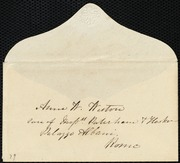 Anne W. Weston
care of Messrs Pakenham & Hooker
Palazzo Albani
Rome